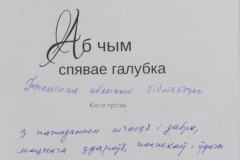 Аб чым
спявае галубка
Гомельскай абласной бібліятэцы
Кніга прозы
з пажаданнем шчасця і дабра,
моцнага здароўя, поспехаў і ўдачы